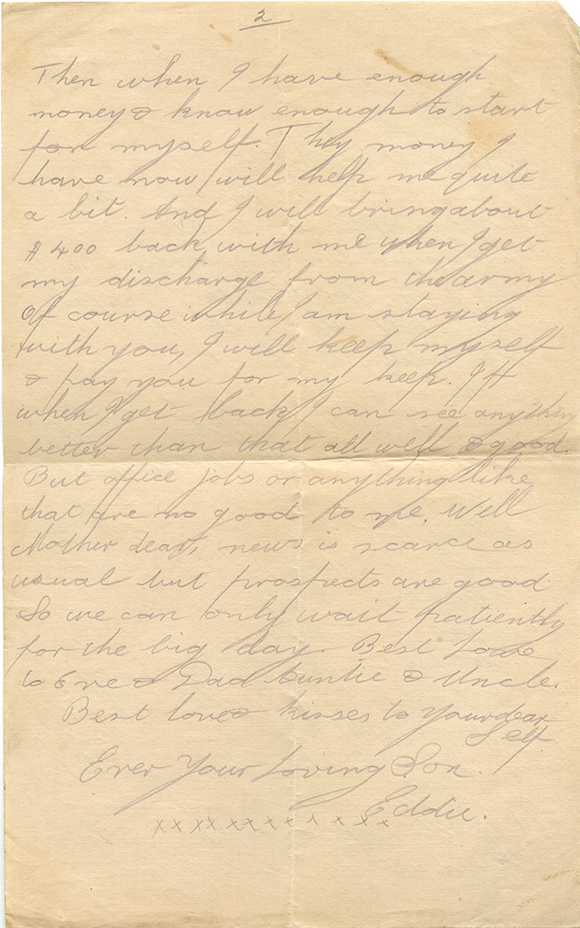 2
Then when I have enough
money & know enough to start
for myself. They money I
have now will help me quite
a bit. And I will bring about
$400 back with me when I get
my discharge from the army
Of course while I am staying
with you, I will keep myself
& pay you for my keep. If
when I get back I can see anything
better than that all well & good.
But office jobs or anything like
that are no good to me. Well
Mother dear, news is scarce as
usual but prospects are good
So we can only wait patiently
for the big day. Best Love
to Eve & Dad Auntie & Uncle.
Best love & kisses to Your dear
Self
Ever Your Loving Son.
Eddie.
xx xx x x x x x x x x x